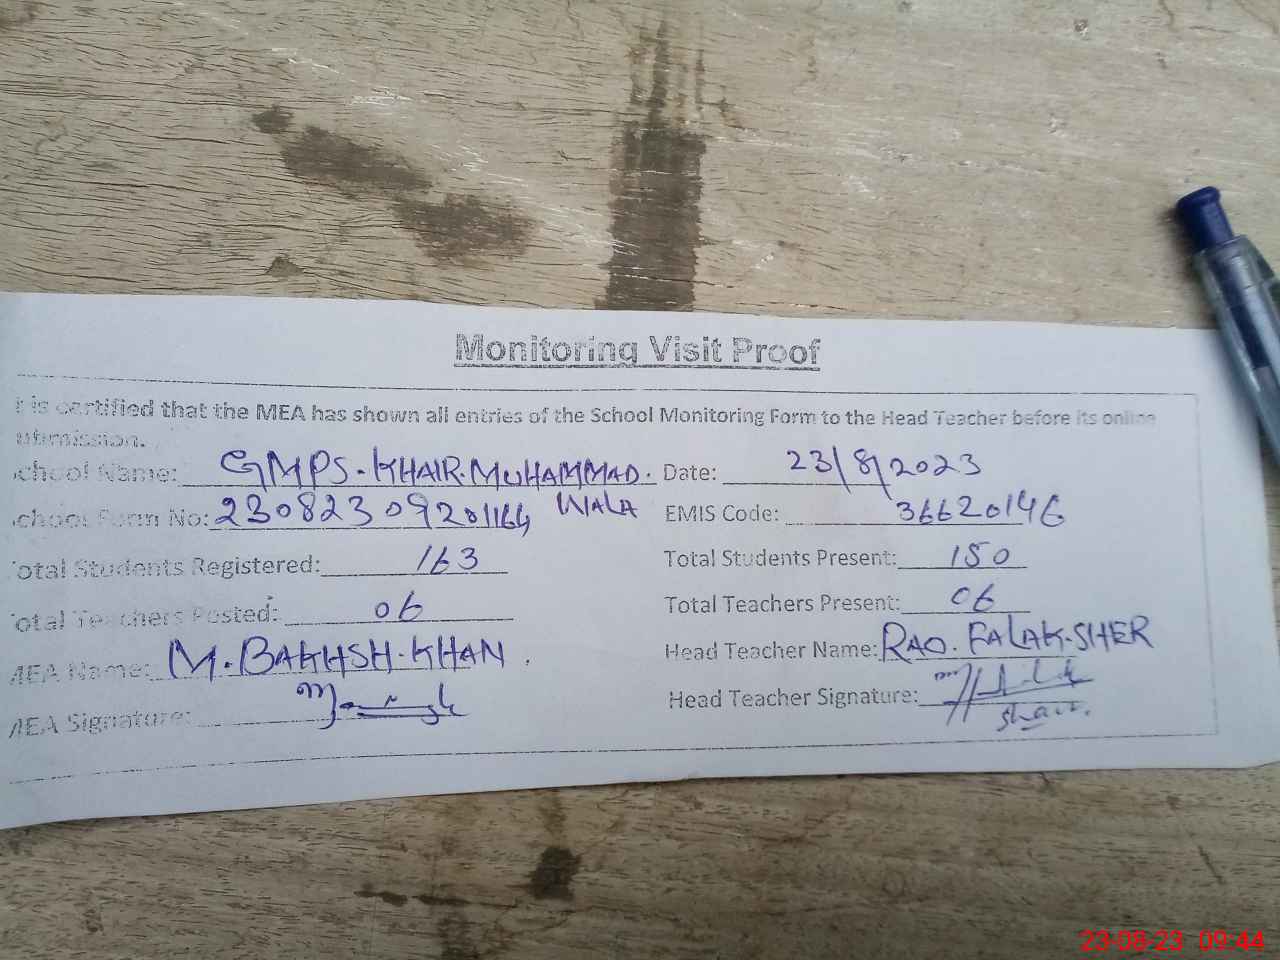 Monitoring Visit Proof
t is certified that the MEA has shown all entries of the School Monitoring Form to the Head Teacher before its online
ubmission.
chool Name: GMPS-KHAIR.MUHAMMAD. Date: 23/8/2023
WALA
chool Form No: 23082309201164 EMIS Code: 36620146
otal Students Registered: 163 Total Students Present: 150
otal Teachers Posted: 06 Total Teachers Present: 06
MEA Name: M.BAKHSH.KHAN. Head Teacher Name: RAO.FALAK.SHER
MEA Signature: Head Teacher Signature:
23-08-23 09:44